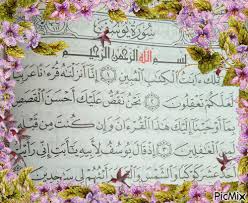 سورة يوسف
بسم الله الرحمن الرحيم
تلك ءايت الكتب المبين إنا أنزلنه قرءنا عربيا
لعلكم تعقلون نحن نقص عليك أحسن القصص
بما أوحينا إليك هذا القرءان وإن كنت من قبله
لمن الغفلين إذ قال يوسف لأبيه يأبت إني رأيت
أحد عشر كوكبا والشمس والقمر رأيتهم لي سجدين
PicMix